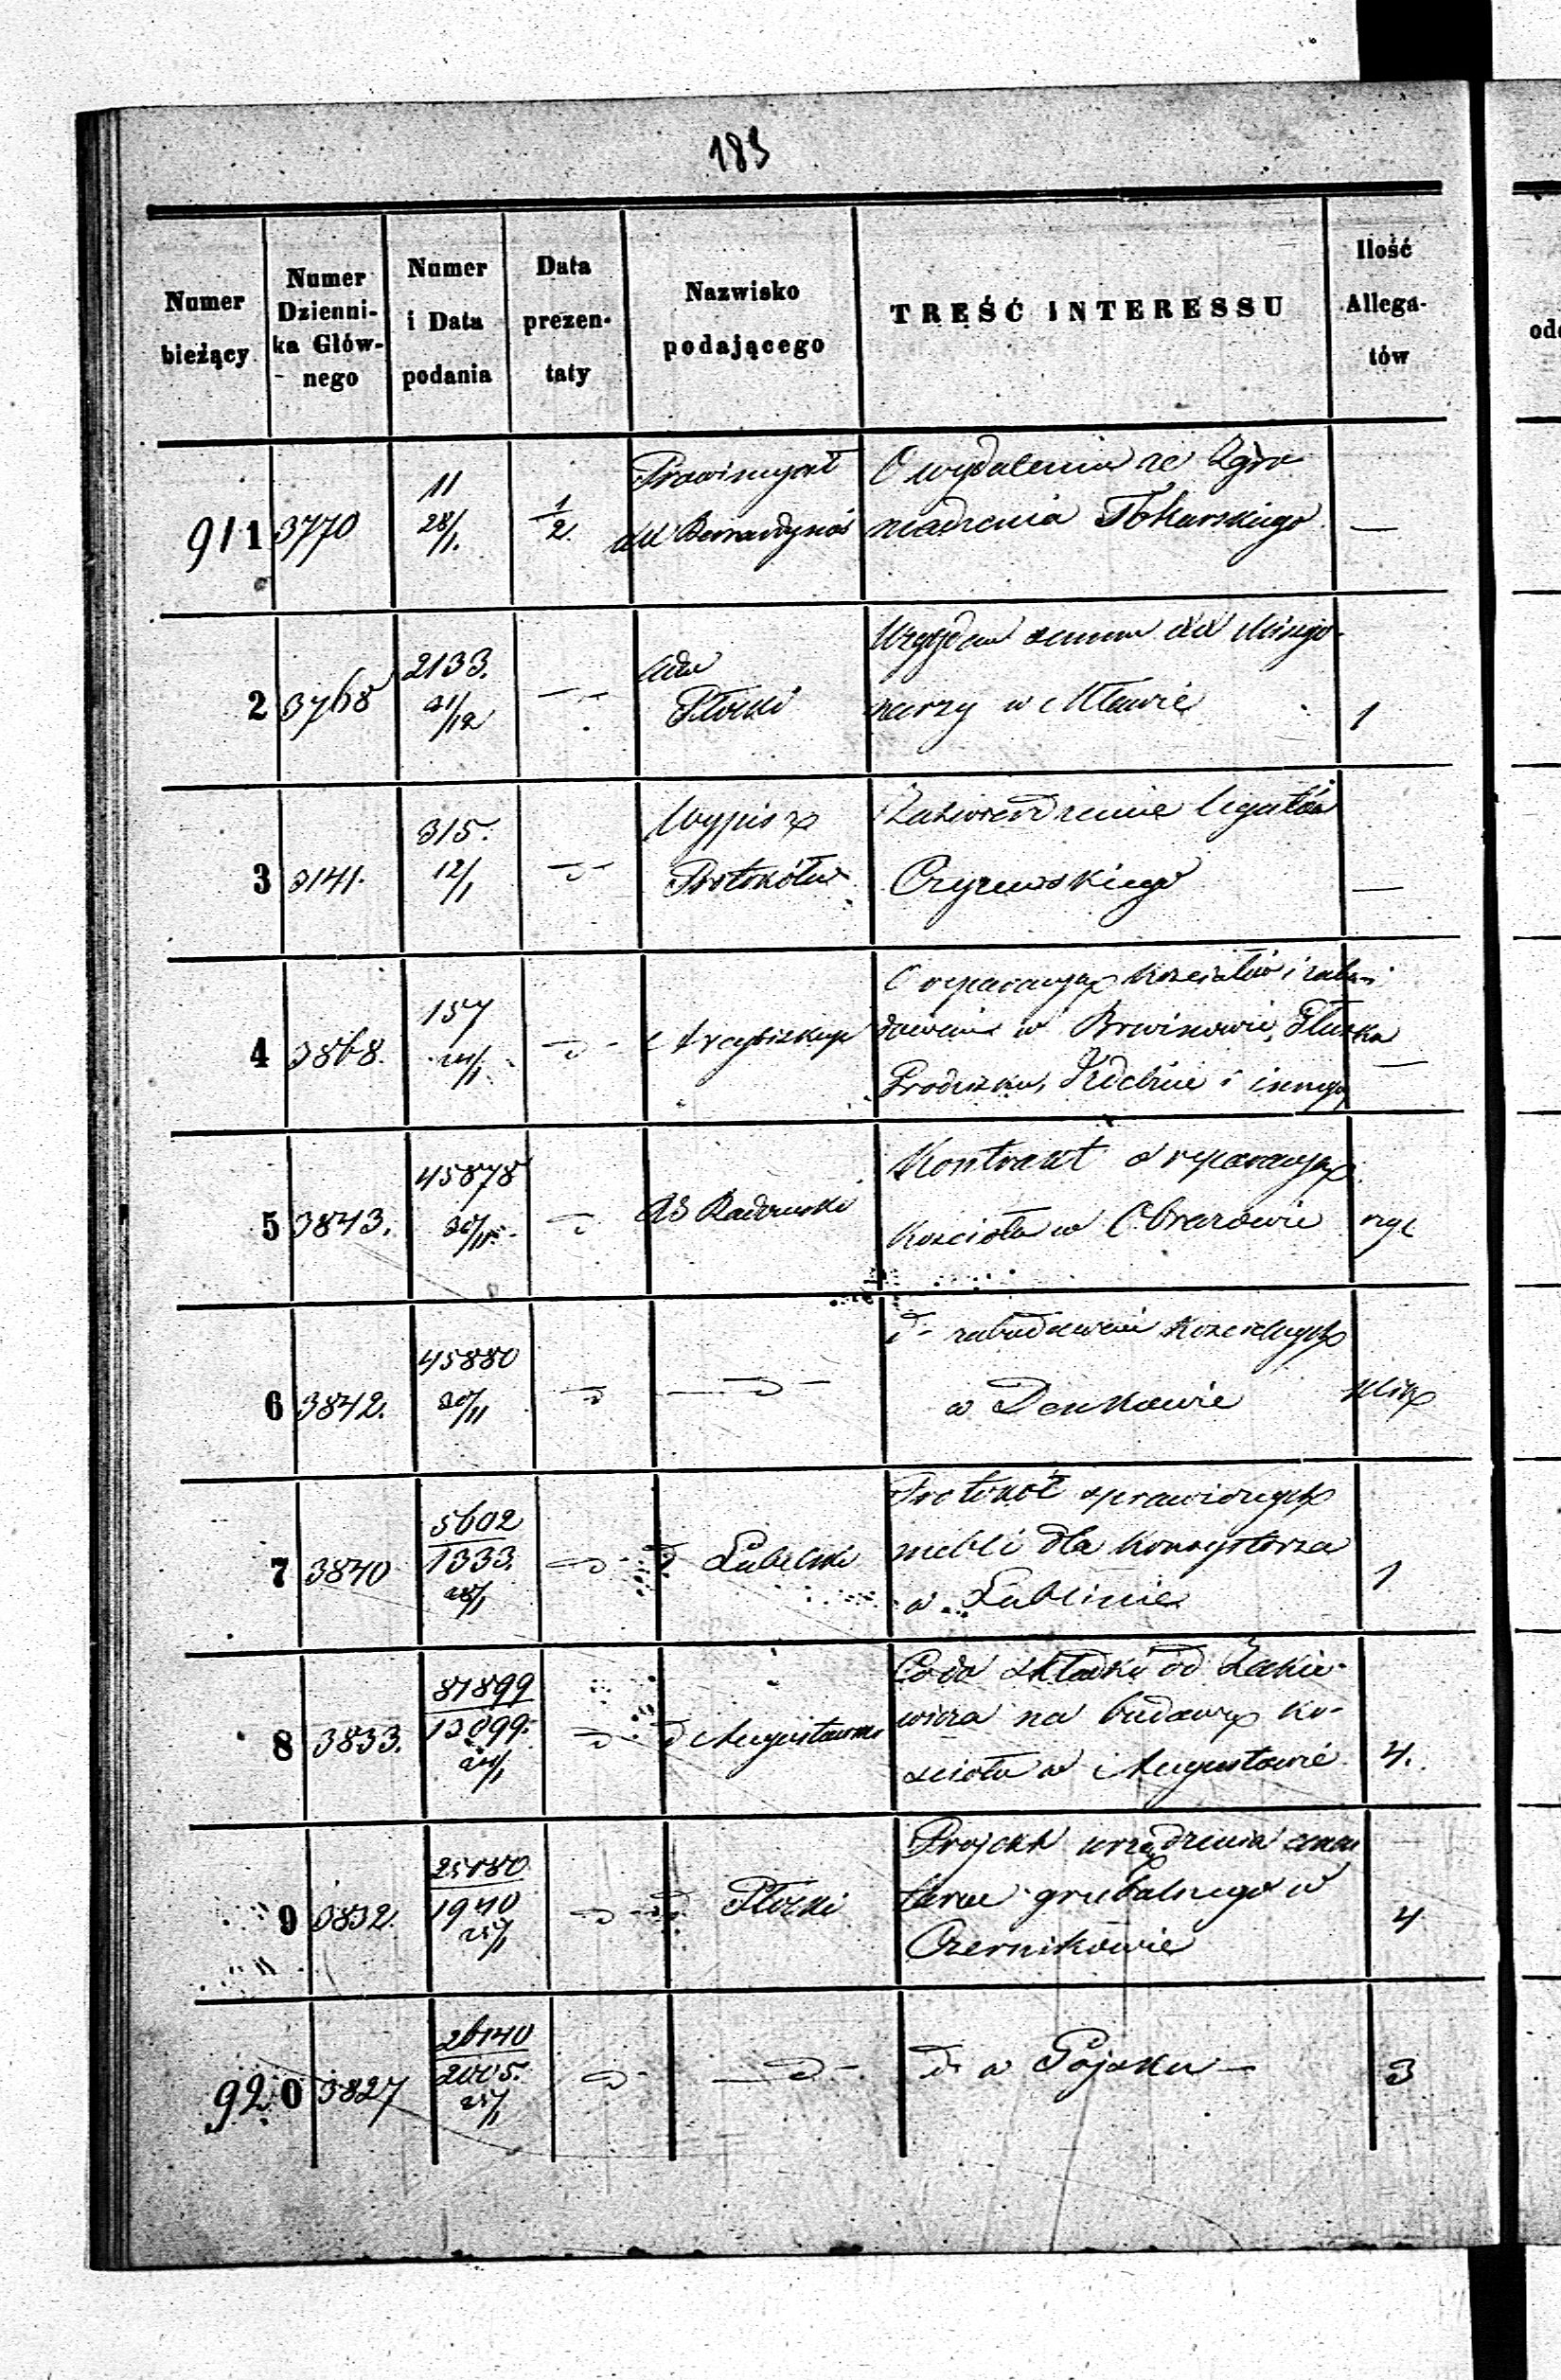 183
Numer bieżący
Numer Dzienni-ka Głów-nego
Numer i Data podania
Data prezen-taty
Nazwisko podającego
TREŚĆ INTERESSU
Ilość Allega-tów
911 3770 11 28/1. 1/2 Prowincyał Bernardynów O wydalenie ze Zgro
madzenia Tokarskiego —
2 3768 2133. 31/12 Płocki summ dla Missyo-
narzy w Mławie 1
3 3141. 315. 12/1 Wypis z Protokółu Zatwierdzenie legatów
Czyżewskiego —
4 3868. 157 24/1 Arcybiskup O reparacyą kościołów i zabu
dowań w Brwinowie,
i innego —
5 3843. 45878 30/11 RG Radomski Kontrakt o reparacyą
kościoła w Obrazowie
6 3842. 45880 30/11 d- zabudowań kościelnych
w Denkowie
7 3840 5602 1333. 28/1 d Lubelski Protokół sprawionych
mebli dla Konsystorza
w Lublinie 1
8 3833. 81899 13099. 24/1 d Augustowski Co do składki od
na budowę ko-
ścioła w Augustowie 4.
9 3832. 25180 1940 25/1 d Płocki Projekt urządzenia cmen
tarza grzebalnego w
Czernikowie 4
920 3827 26140 2005. 25/1 d- d- w 3